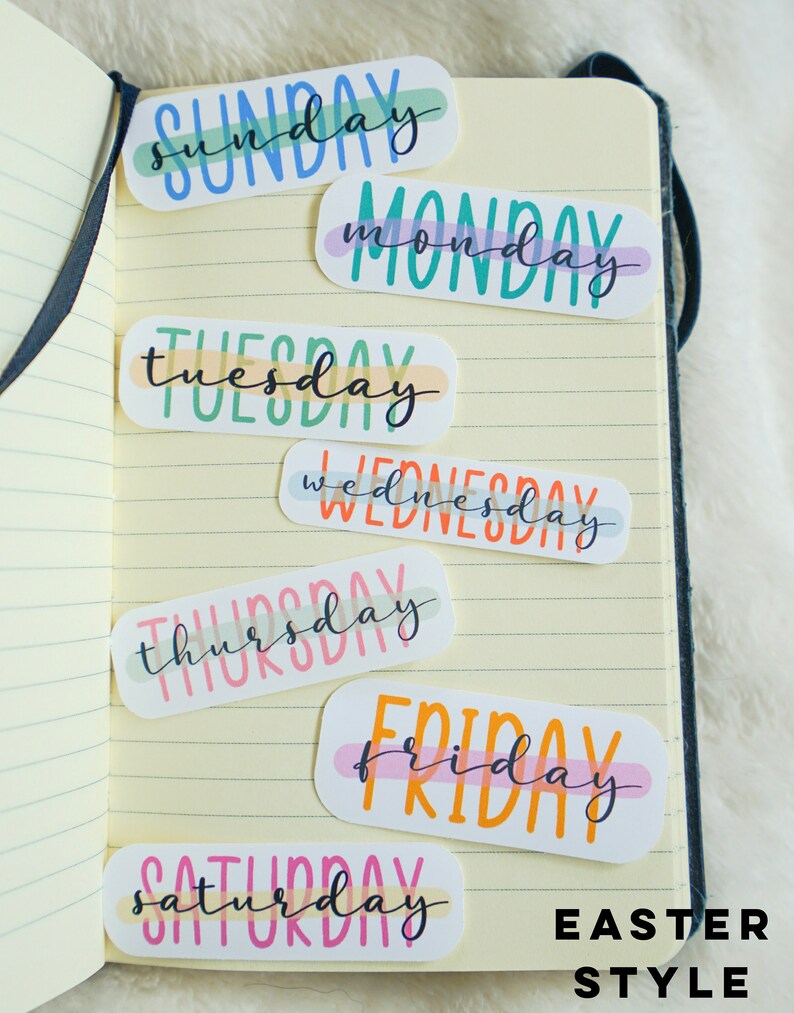 SUNDAY
sunday
MONDAY
monday
TUESDAY
tuesday
WEDNESDAY
wednesday
THURSDAY
thursday
FRIDAY
friday
SATURDAY
saturday
EASTER
STYLE